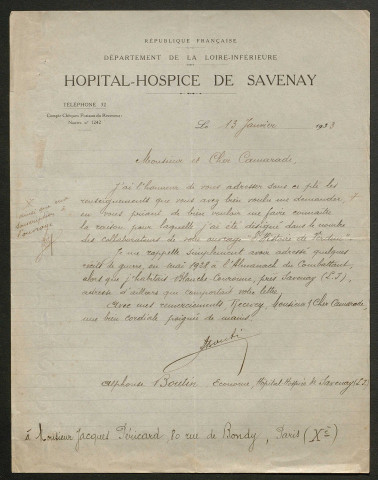 RÉPUBLIQUE FRANÇAISE
DÉPARTEMENT DE LA LOIRE-INFÉRIEURE
HOPITAL-HOSPICE DE SAVENAY
TÉLÉPHONE 32
Compte Chèques Postaux du Receveur:
Nantes nº 1242
Le 13 Janvier 193
Monsieur et Cher Camarade,
J'ai l'honneur de vous adresser sous ce pli les
renseignements que vous avez bien voulu me demander, +
en vous priant de bien vouloir me faire connaître
la raison pour laquelle j'ai été désigné dans le nombre
des collaborateurs de votre ouvrage "Histoire de Verdun"
+ ainsi que ma
souscription à
l'ouvrage
Je me rappelle simplement avoir adressé quelques
récits de guerre, en mai 1928 à l'Almanach du Combattant,
alors que j'habitais Blanche-Couronne, près Savenay (L.I),
adresse d'ailleurs que comportait votre lettre.
Avec mes remerciements, Recevez, Monsieur & Cher Camarade,
une bien cordiale poignée de mains.
Alphonse Boutin Econome Hôpital Hospice de Savenay (L.I)
à Monsieur Jacques Péricard 80 rue de Bondy, Paris (Xe)